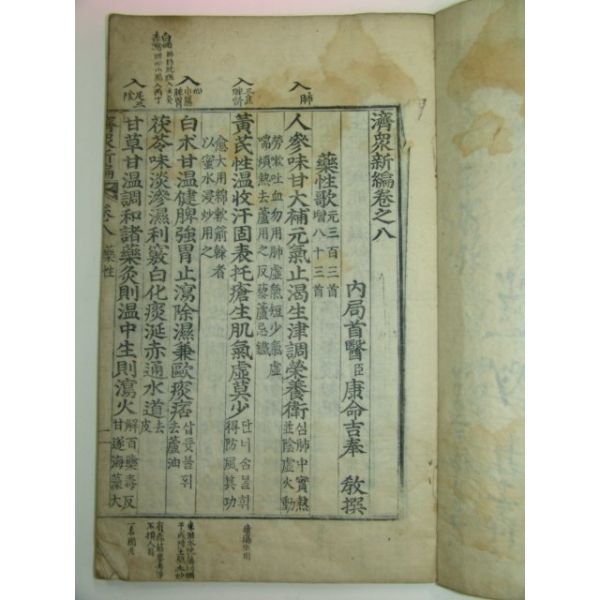 濟衆新編卷之八
內局首醫臣康命吉奉 敎撰
藥性歌 元三百三首 增八十三首
人參味甘大補元氣止渴生津調榮養衛 심肺中實熱並陰虛火動
勞嗽吐血勿用肺虛氣短少氣虛
喘煩熱去蘆用之反藜蘆忌鐵
黃芪性溫收汗固表托瘡生肌氣虛莫少 단너삼불휘得防風其功
愈大用綿軟箭幹者
以蜜水浸炒用之
白朮甘溫健脾強胃止瀉除濕兼歐痰痞 삽듓불휘去蘆油
茯苓味淡滲濕利竅白化痰涎赤通水道 去皮
甘草甘溫調和諸藥灸則溫中生則瀉火 解百藥毒反甘遂海藻大
濟衆新編 卷八 藥性
入肺
入
入
入